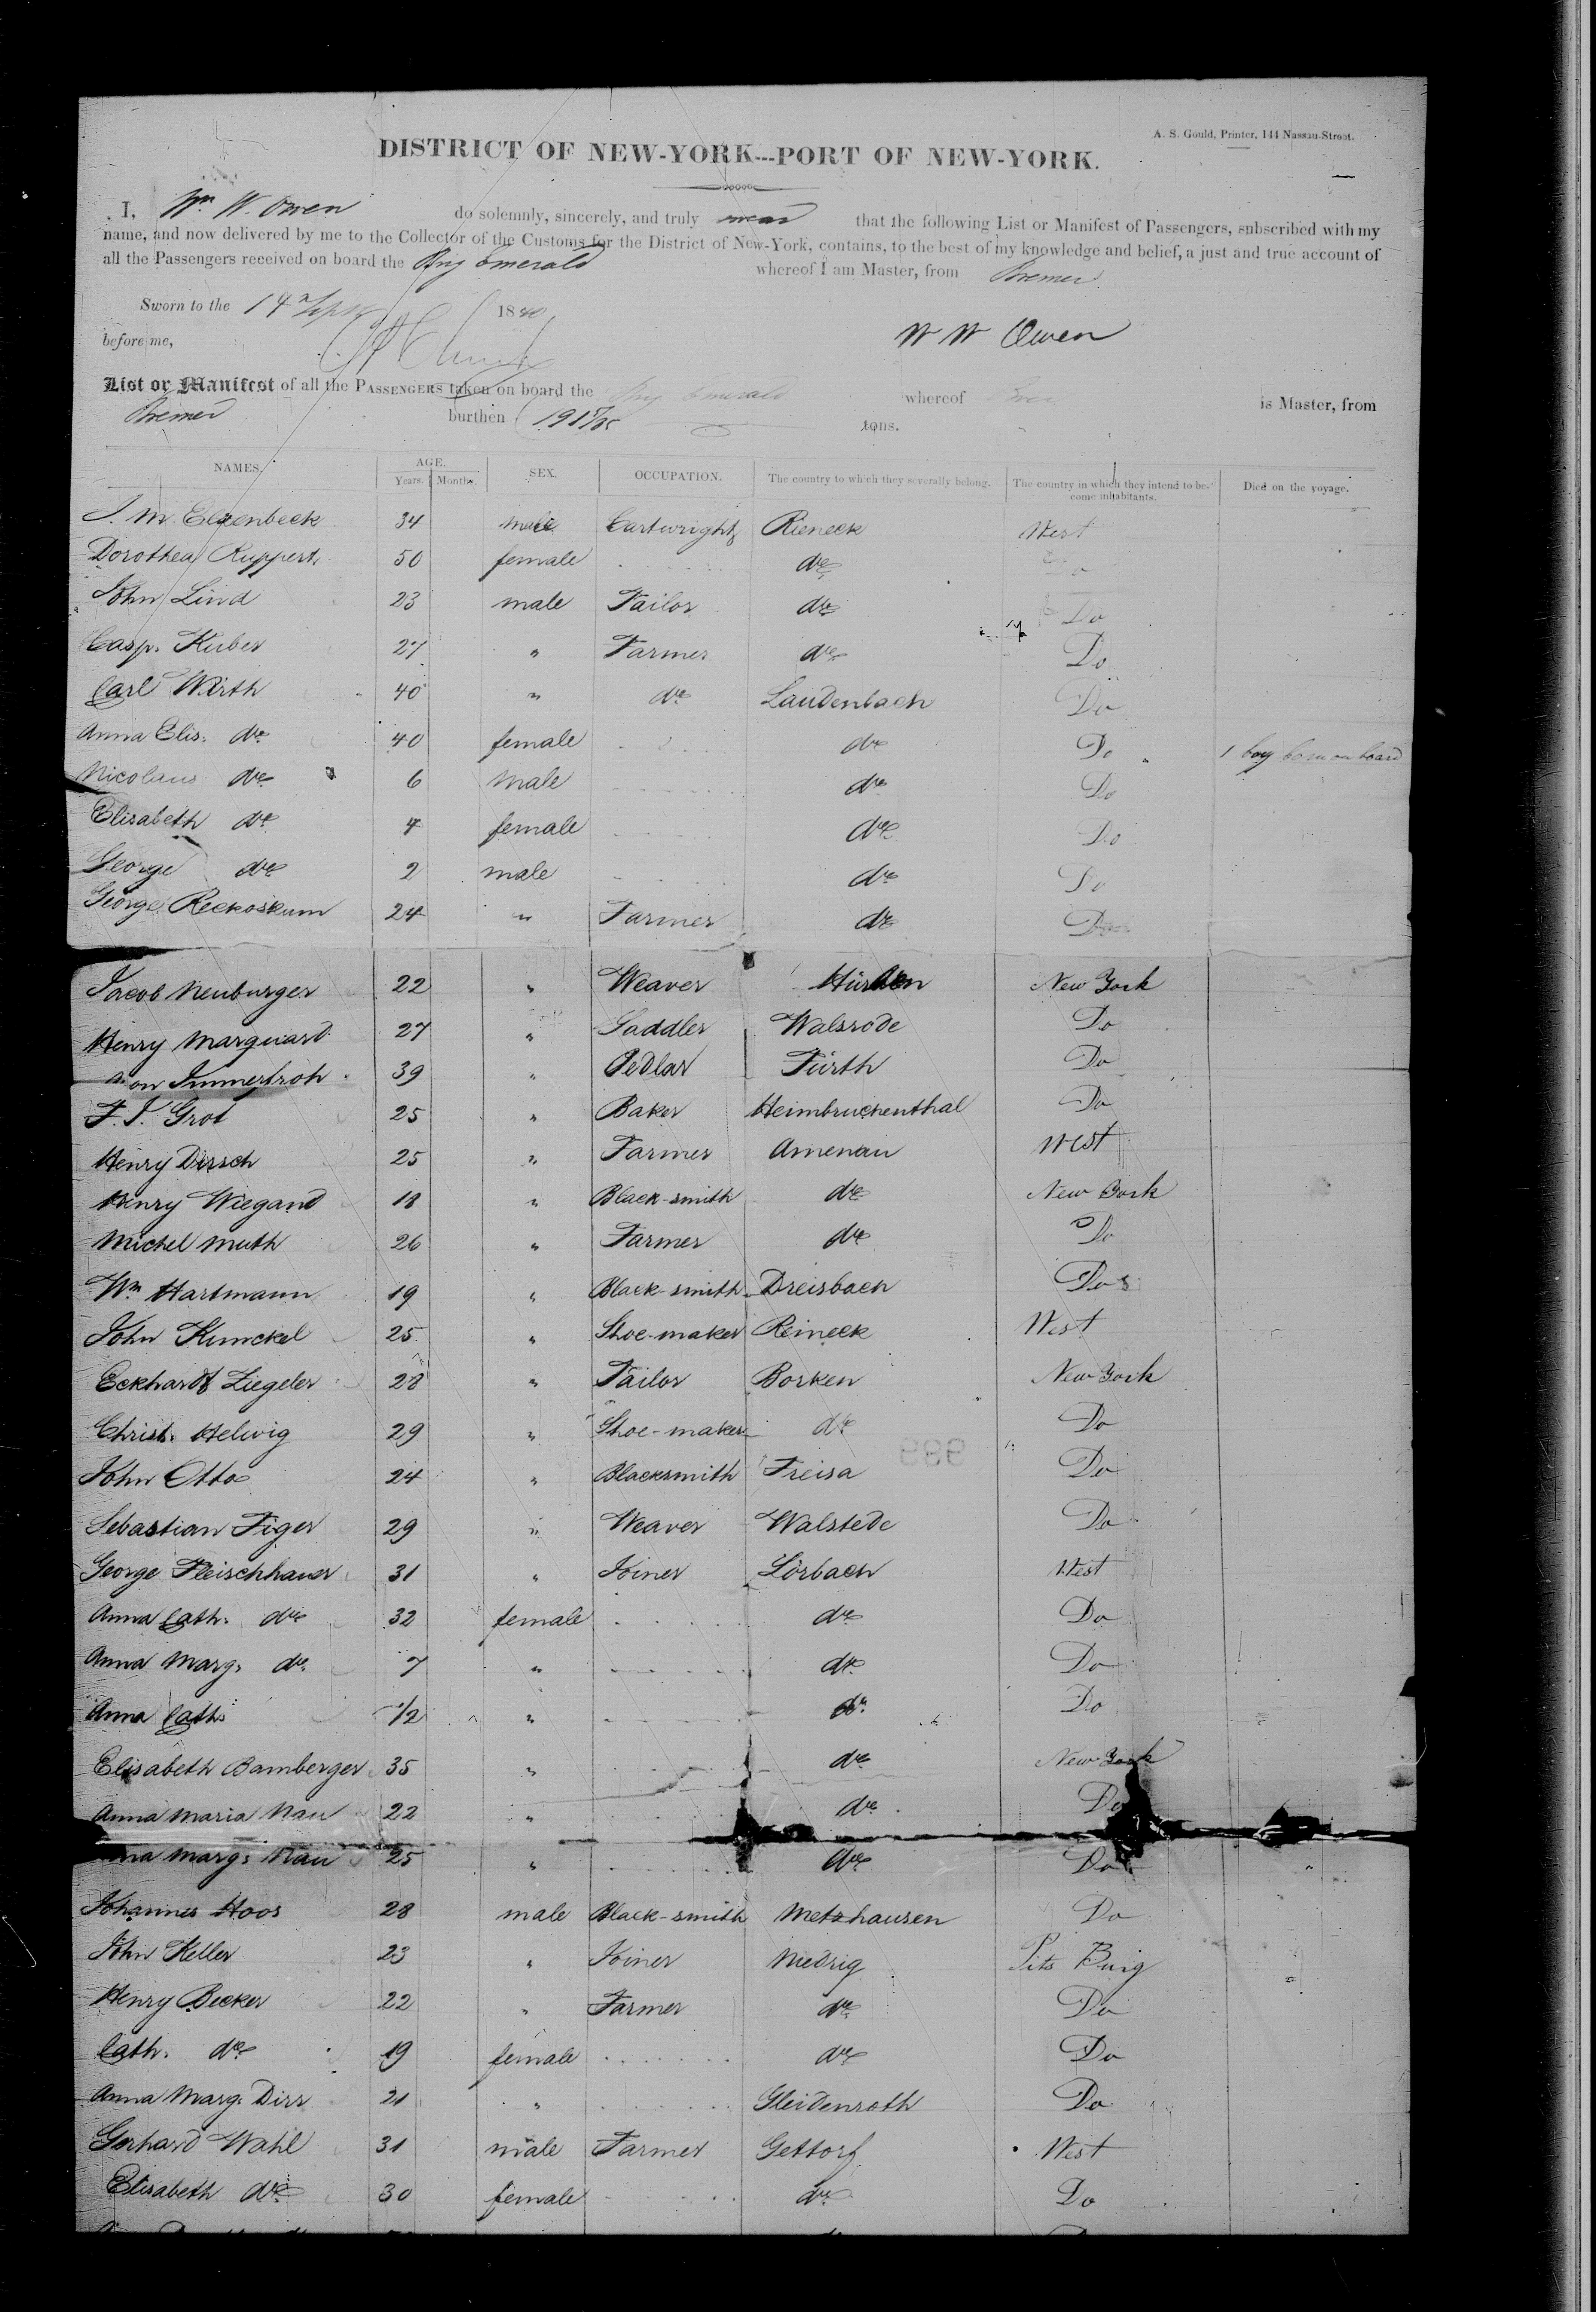 A. S. Gould, Printer, 144 Nassau-Street.
DISTRICT OF NEW-YORK---PORT OF NEW-YORK.
I, Wm W. Owen do solemnly, sincerely, and truly swear that the following List or Manifest of Passengers, subscribed with my
name, and now delivered by me to the Collector of the Customs for the District of New-York, contains, to the best of my knowledge and belief, a just and true account of
all the Passengers received on board the Brig Emerald whereof I am Master, from Bremen
Sworn to the 14 Sept 1840
before me,
W W Owen
List or Manifest of all the PASSENGERS taken on board the Brig Emerald whereof Owen is Master, from
Bremen burthen 191 tons.
NAMES. AGE. Years. Months. SEX. OCCUPATION. The country to which they severally belong. The country in which they intend to become inhabitants. Died on the voyage.
J. M. Elzenbeck 34 male Cartwright Rieneck West
Dorothea Ruppert 50 female do Do
John Lind 23 male Tailor do Do
Casp. Kuber 27 " Farmer do Do
Carl Wirth 40 " do Laudenbach Do
Anna Elis. do 40 female do Do 1 boy born on board
Nicolaus do 6 male do Do
Elisabeth do 4 female do Do
George do 2 male do Do
George Reckoskum 24 " Farmer do Do
Jacob Neuburger 22 " Weaver Hürben New York
Henry Marquard 27 " Saddler Walsrode Do
39 " Pedlar Fürth Do
F. J. Grot 25 " Baker Heimbruchenthal Do
Henry Dirsch 25 " Farmer Amenau West
Henry Wiegand 18 " Black-smith do New York
Michel Muth 26 " Farmer do Do
Wm Hartmann 19 " Black-smith Dreisbach Do
John Kunckel 25 " Shoe-maker Reineck West
Eckhardt Ziegeler 28 " Tailor Borken New York
Christ. Helwig 29 " Shoe-maker do Do
John Otto 24 " Blacksmith Treisa Do
Sebastian Figer 29 " Weaver Walstede Do
George Fleischhauer 31 " Joiner Lörbach West
Anna Cath. do 32 female do Do
Anna Marg. do 7 " do Do
Anna Cath. 1/2 " do Do
Elisabeth Bamberger 35 " do New York
Anna Maria Nau 22 " do Do
Marg. Nau 25 " do Do
Johannes Hoos 28 male Black-smith Metzhausen Do
John Keller 23 " Joiner Nedrig Pits Burg
Henry Becker 22 " Farmer do Do
Cath. do 19 female do Do
Anna Marg. Dirr 21 " Gleidenroth Do
Gerhard Wahl 31 male Farmer Gettorf West
Elisabeth do 30 female do Do